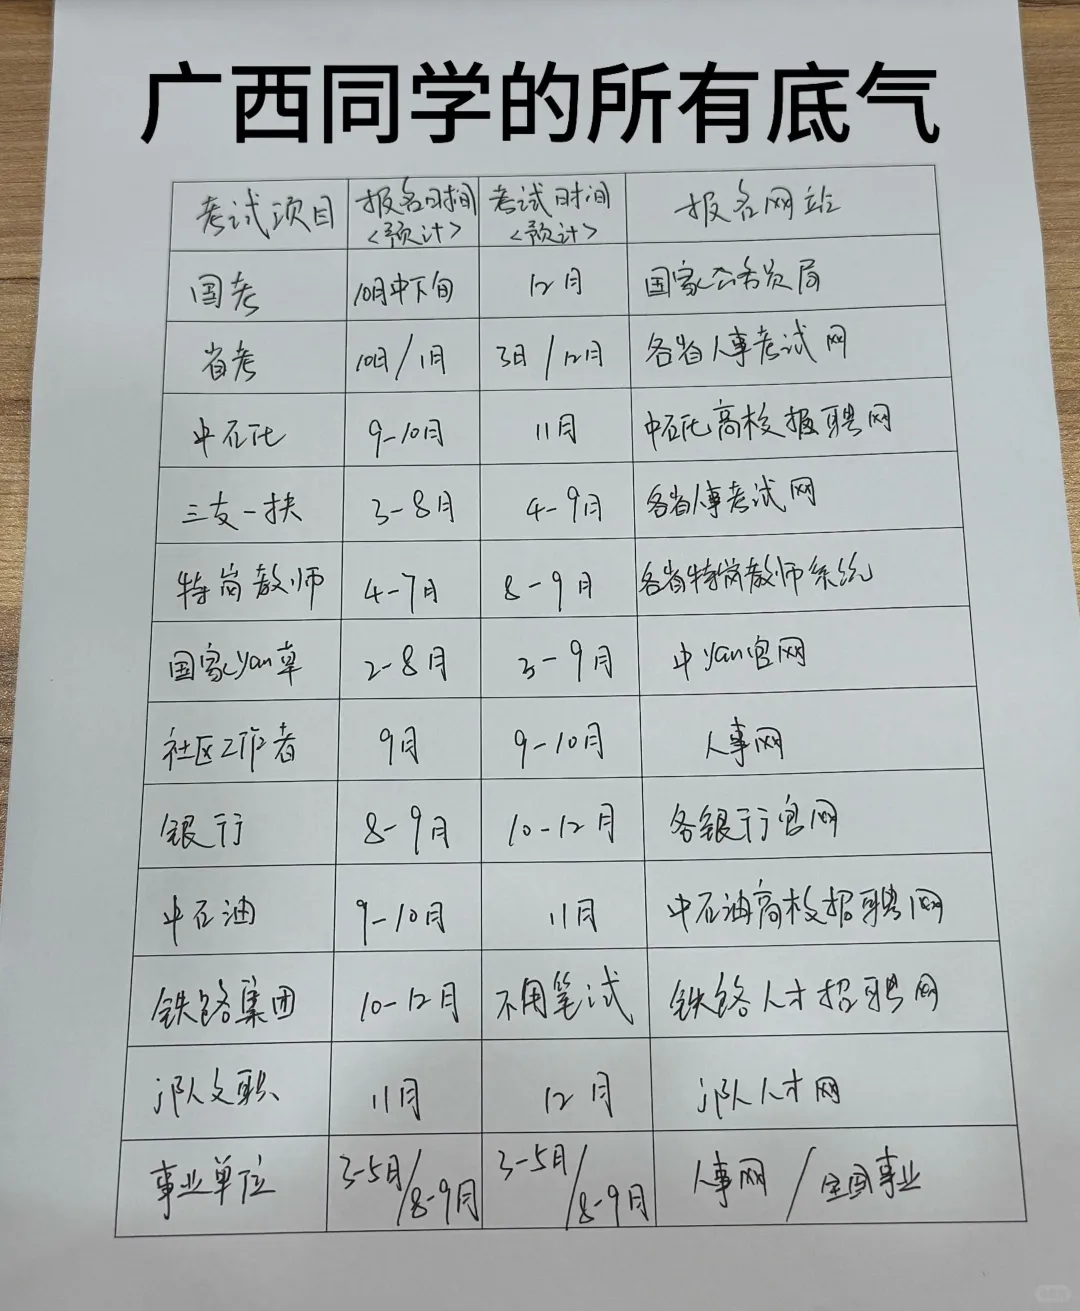 广西同学的所有底气
考试项目 报名时间 考试时间 报名网站
<预计> <预计>
国考 10月中下旬 12月 国家公务员局
省考 10月/1月 3月/12月 各省人事考试网
中石化 9-10月 11月 中石化高校报聘网
三支一扶 3-8月 4-9月 各省人事考试网
特岗教师 4-7月 8-9月 各省特岗教师系统
国家yan草 2-8月 3-9月 中yan官网
社区工作者 9月 9-10月 人事网
银行 8-9月 10-12月 各银行官网
中石油 9-10月 11月 中石油高校招聘网
铁路集团 10-12月 不用笔试 铁路人才招聘网
j队文职 11月 12月 j队人才网
事业单位 3-5月/8-9月 3-5月/8-9月 人事网/全国事业